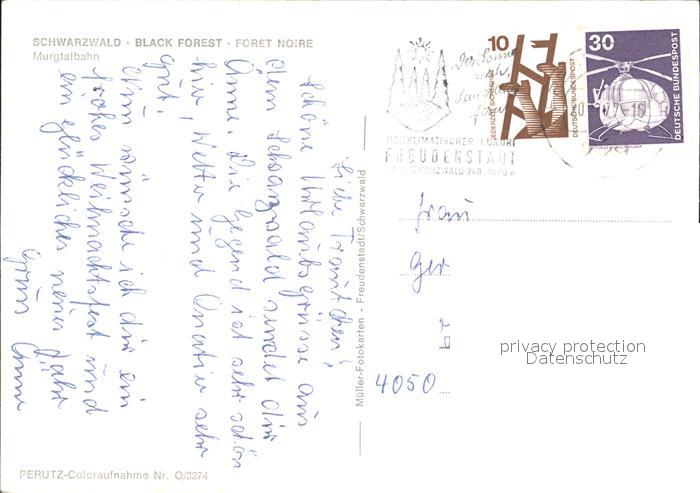 SCHWARZWALD · BLACK FOREST · FORET NOIRE
Murgtalbahn
Liebe Trautchen!
Schöne Urlaubsgrüsse aus
dem Schwarzwald sendet dir
Anne. Die Gegend ist sehr schön
hier, Wetter und Quatier sehr
gut.
Nun wünsche ich dir ein
frohes Weihnachtsfest und
ein glückliches neues Jahr
Gruss Anne
PERUTZ-Coloraufnahme Nr. O/3274
Müller-Fotokarten - Freudenstadt/Schwarzwald
Der Sonne
nach,
10
JEDERZEIT SICHERHEIT
DEUTSCHE BUNDESPOST
30
DEUTSCHE BUNDESPOST
HEILKLIMATISCHER KURORT
FREUDENSTADT
Frau
Ger
4050
privacy protection
Datenschutz